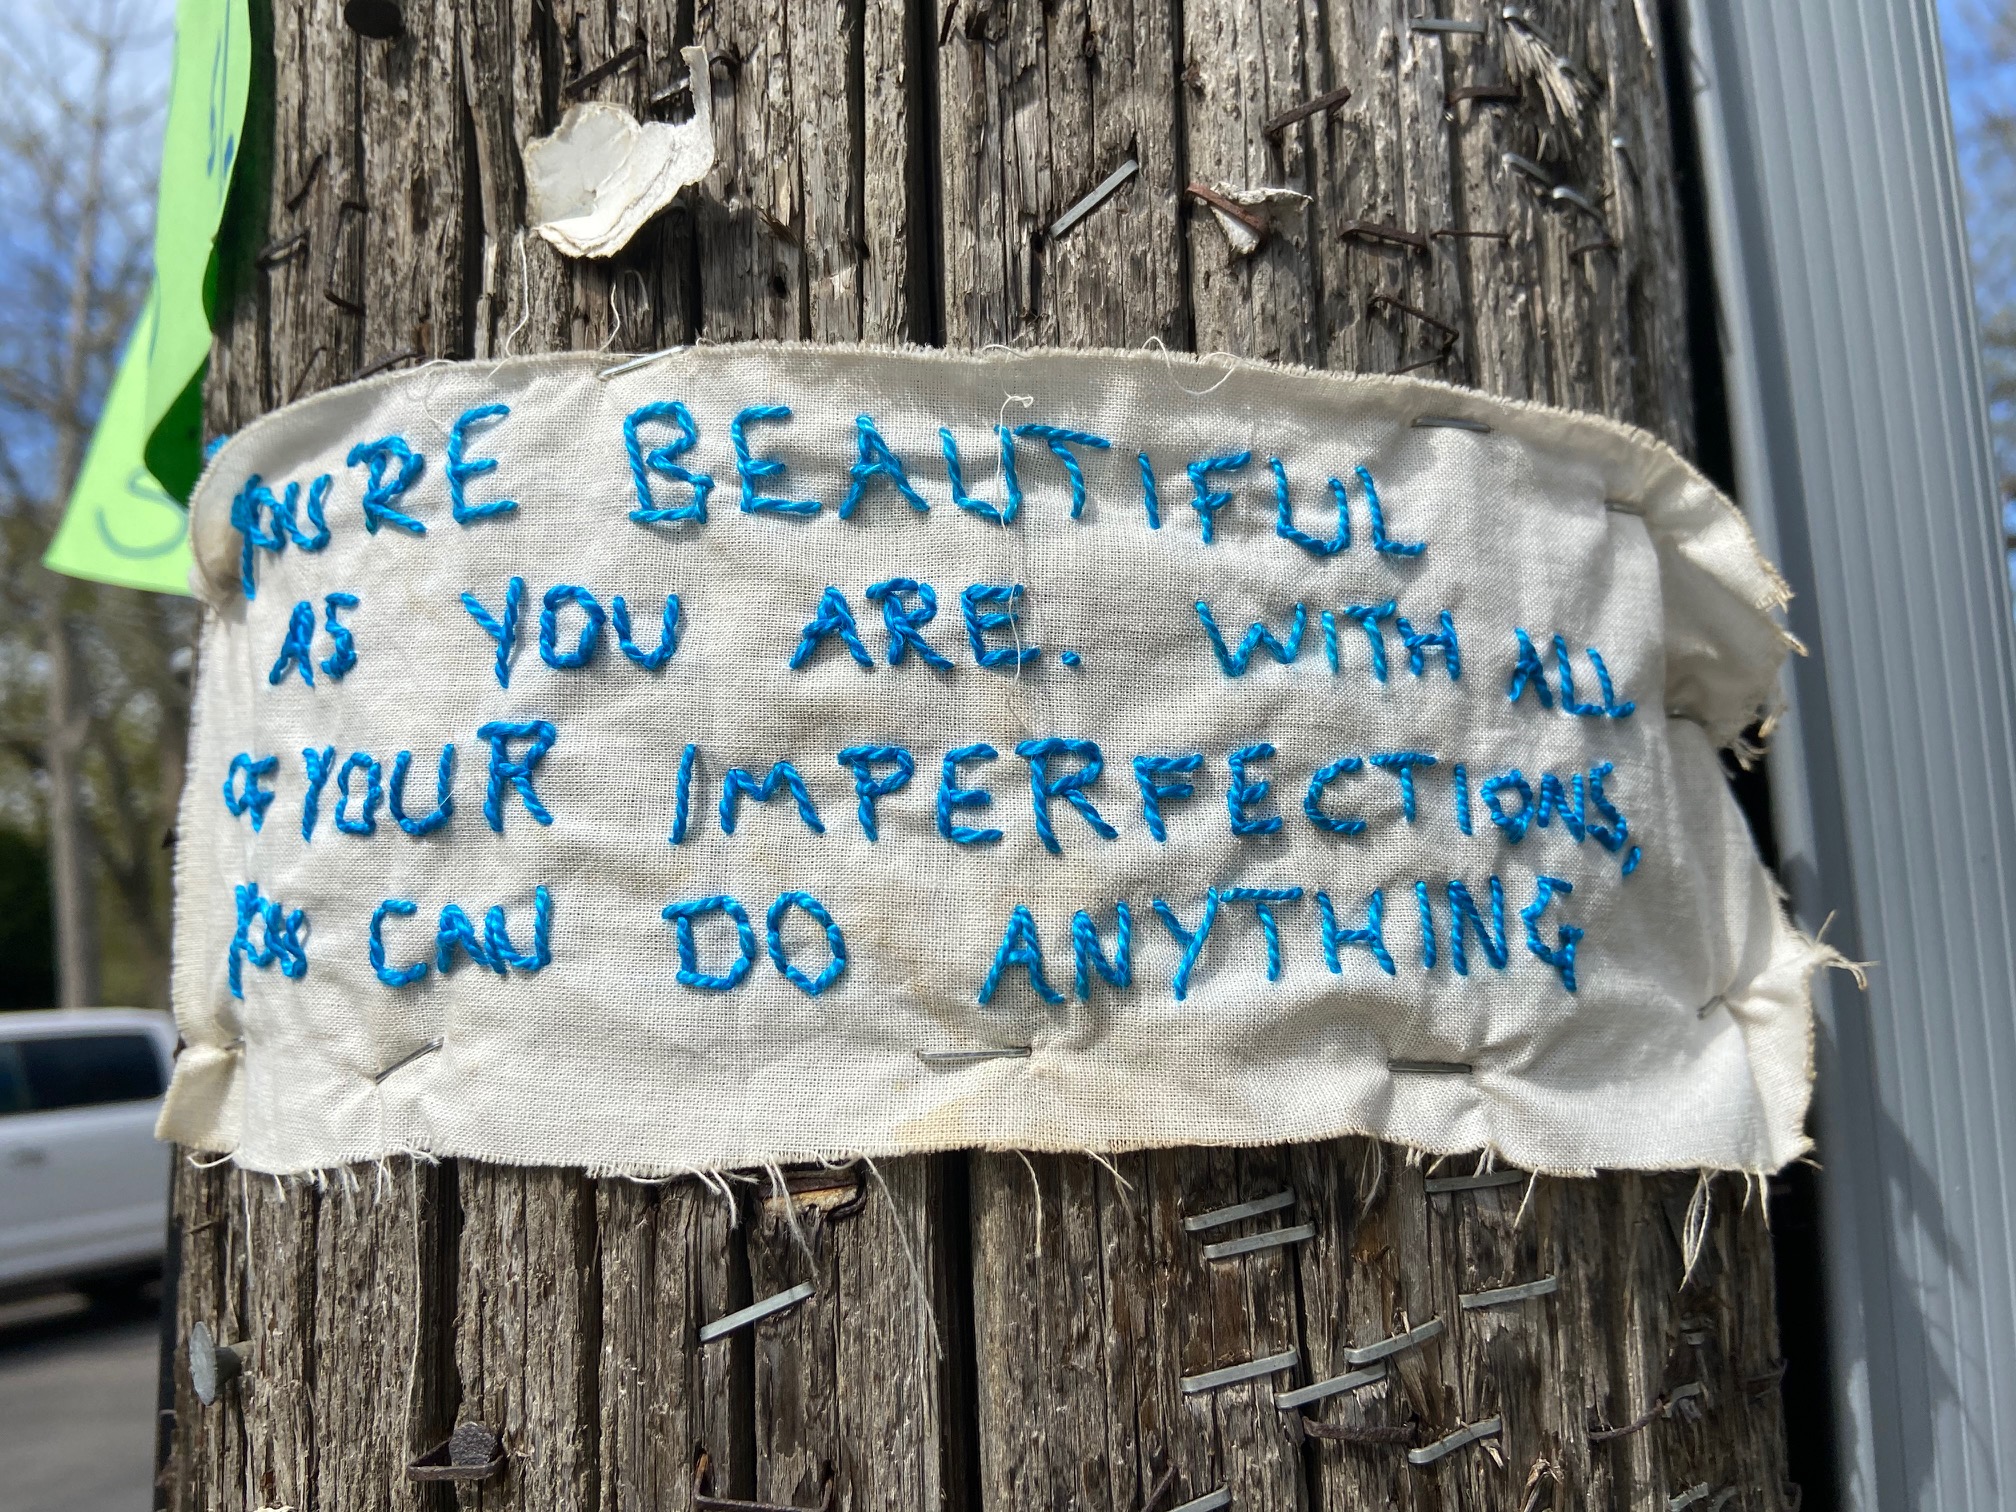 YOU'RE BEAUTIFUL
AS YOU ARE. WITH ALL
OF YOUR IMPERFECTIONS,
YOU CAN DO ANYTHING